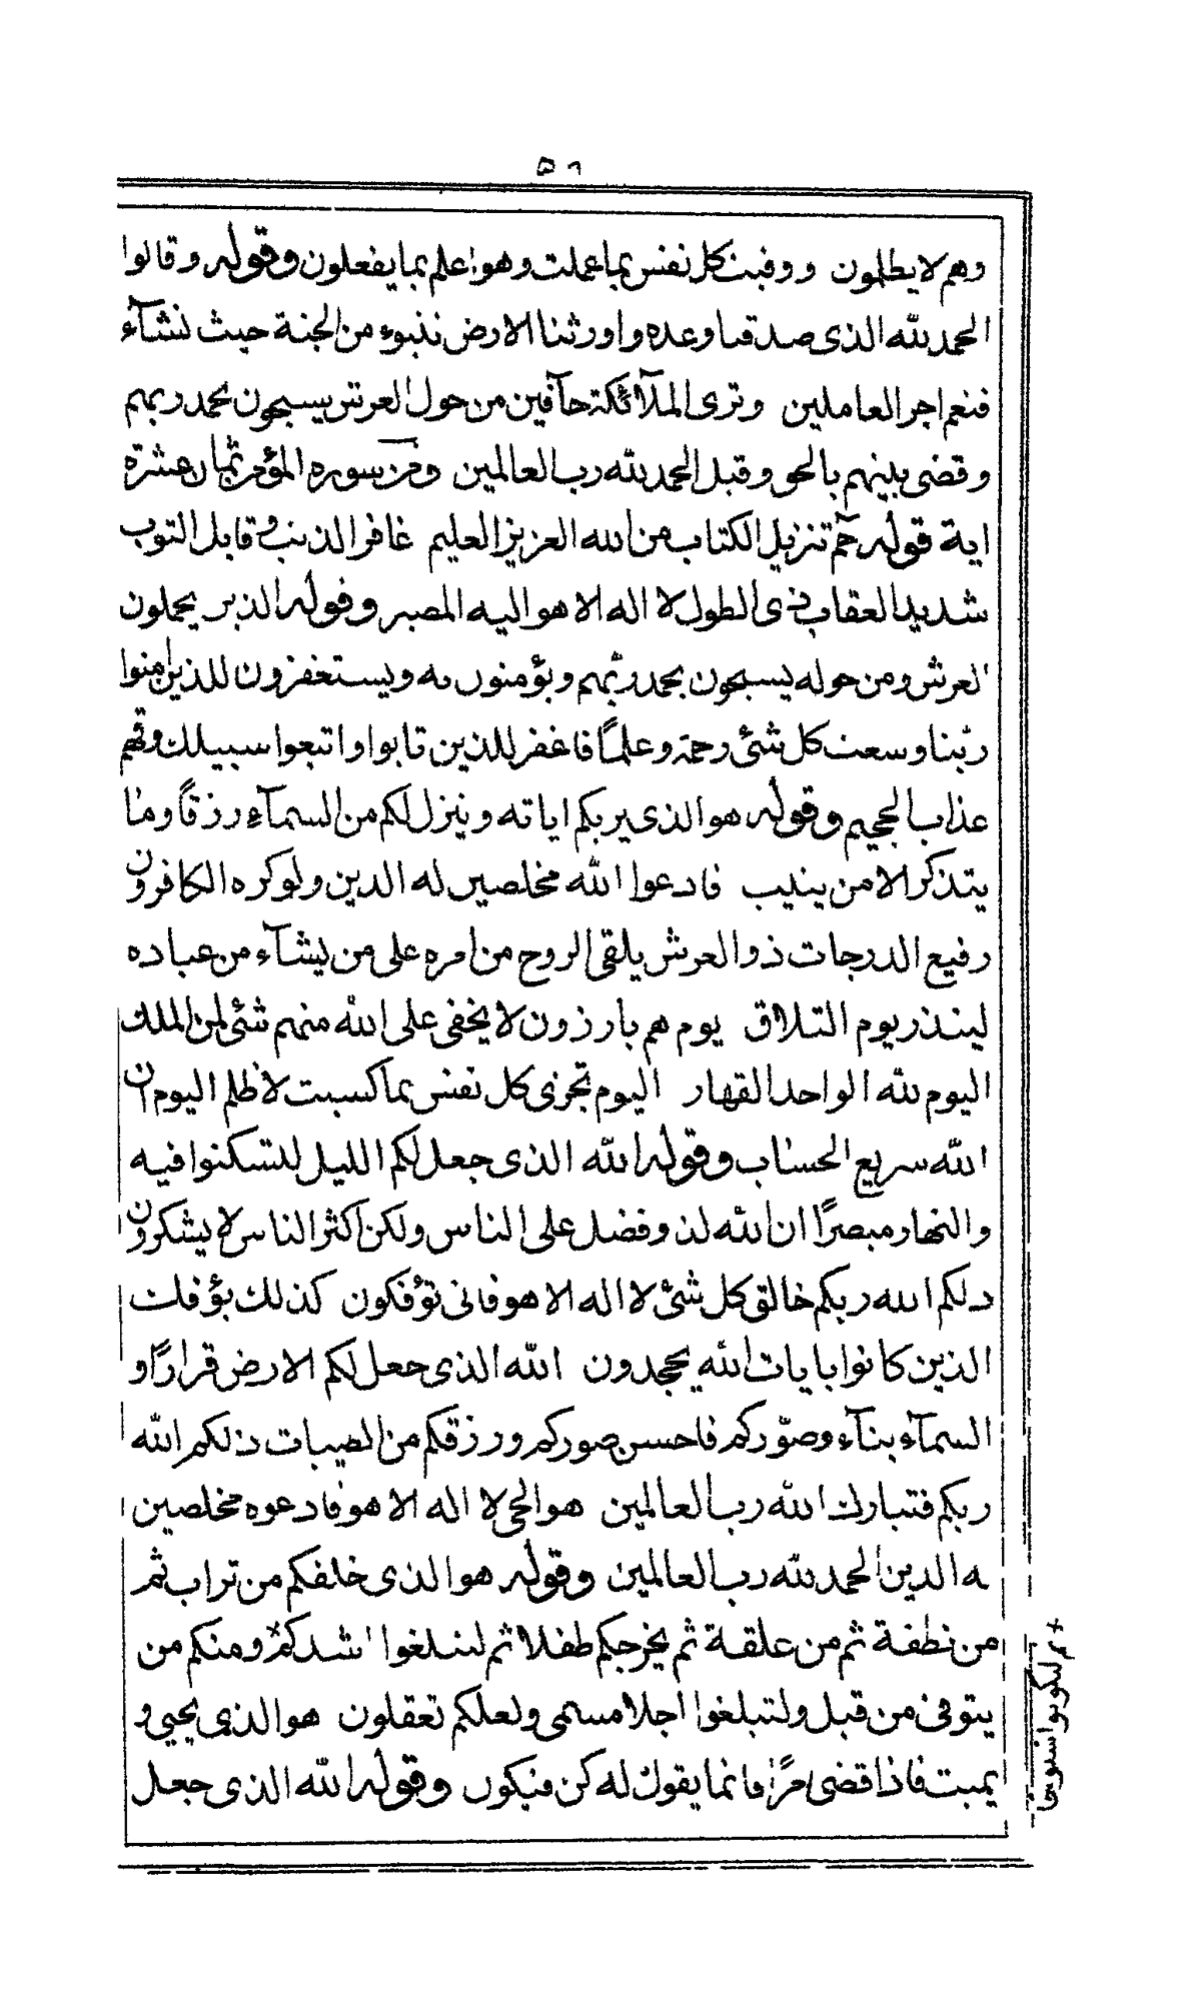 ٥٦
وهم لا يظلمون ووفيت كل نفس بما عملت وهو اعلم بما يفعلون وقوله وقالوا
الحمد لله الذى صدقنا وعده واورثنا الارض نتبوء من الجنة حيث نشآء
فنعم اجر العاملين وترى الملآئكة حآفين من حول العرش يسبحون بحمد ربهم
وقضى بينهم بالحق وقيل الحمد لله رب العالمين ومن سوره المؤمن ثمان عشرة
اية قوله حم تنزيل الكتاب من الله العزيز العليم غافر الذنب وقابل التوب
شديد العقاب ذى الطول لا اله الا هو اليه المصير وقوله الذين يحملون
العرش ومن حوله يسبحون بحمد ربهم ويؤمنون به ويستغفرون للذين امنوا
ربّنا وسعت كل شئ رحمة وعلمًا فاغفر للذين تابوا واتبعوا سبيلك وقهم
عذاب الجحيم وقوله هو الذى يريكم اياته وينزل لكم من السمآء رزقًا وما
يتذكر الا من ينيب فادعوا الله مخلصين له الدين ولو كره الكافرون
رفيع الدرجات ذو العرش يلقى الروح من امره على من يشآء من عباده
لينذر يوم التلاق يوم هم بارزون لا يخفى على الله منهم شئ لمن الملك
اليوم لله الواحد القهار اليوم تجزى كل نفس بما كسبت لا ظلم اليوم ان
الله سريع الحساب وقوله الله الذى جعل لكم الليل لتسكنوا فيه
والنهار مبصرًا ان الله لذو فضل على الناس ولكن اكثر الناس لا يشكرون
ذلكم الله ربكم خالق كل شئ لا اله الا هو فانى تؤفكون كذلك يؤفك
الذين كانوا بايات الله يجحدون الله الذى جعل لكم الارض قرارًا و
السمآء بنآء وصوّركم فاحسن صوركم ورزقكم من الطيبات ذلكم الله
ربكم فتبارك الله رب العالمين هو الحى لا اله الا هو فادعوه مخلصين
له الدين الحمد لله رب العالمين وقوله هو الذى خلقكم من تراب ثم
من نطفة ثم من علقة ثم يخرجكم طفلا ثم لتبلغوا اشدكم ومنكم من
يتوفى من قبل ولتبلغوا اجلا مسمى ولعلكم تعقلون هو الذى يحيى و
يميت فاذا قضى امرًا فانما يقول له كن فيكون وقوله الله الذى جعل
ثم لتكونوا شيوخا